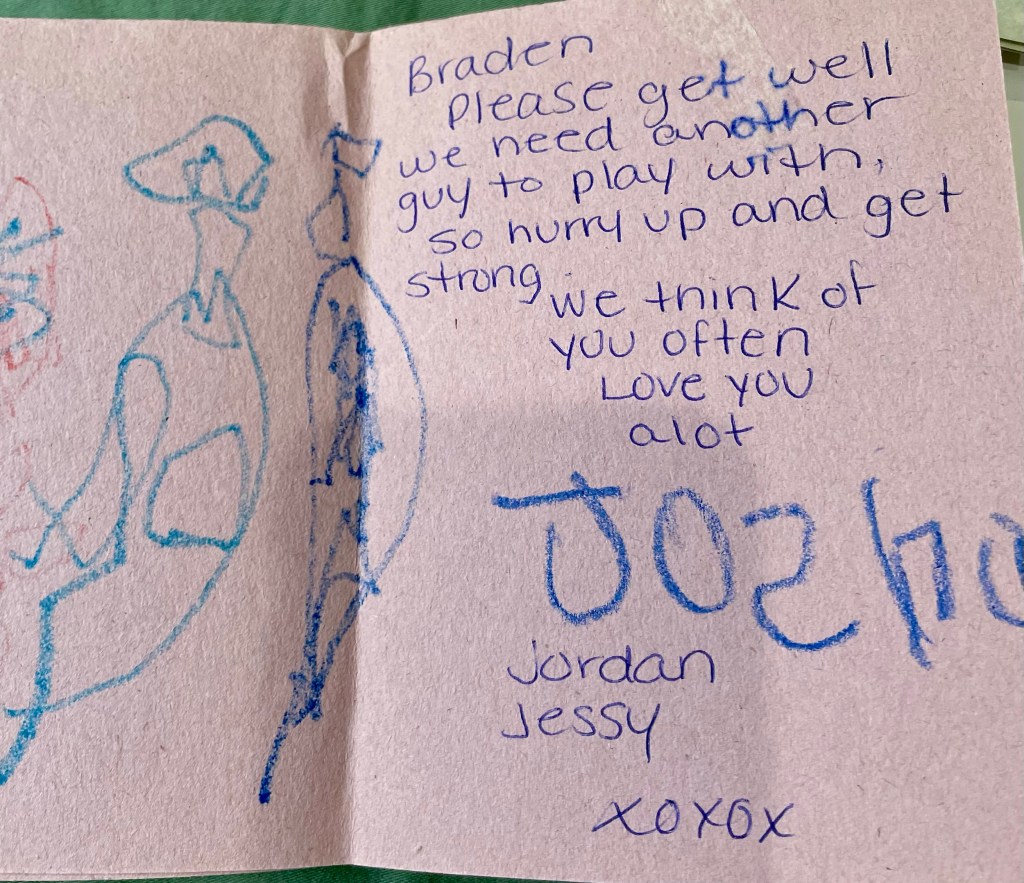 Braden
Please get well
we need another
guy to play with,
so hurry up and get
strong
we think of
you often
Love you
alot
Jordan
Jessy
xoxox